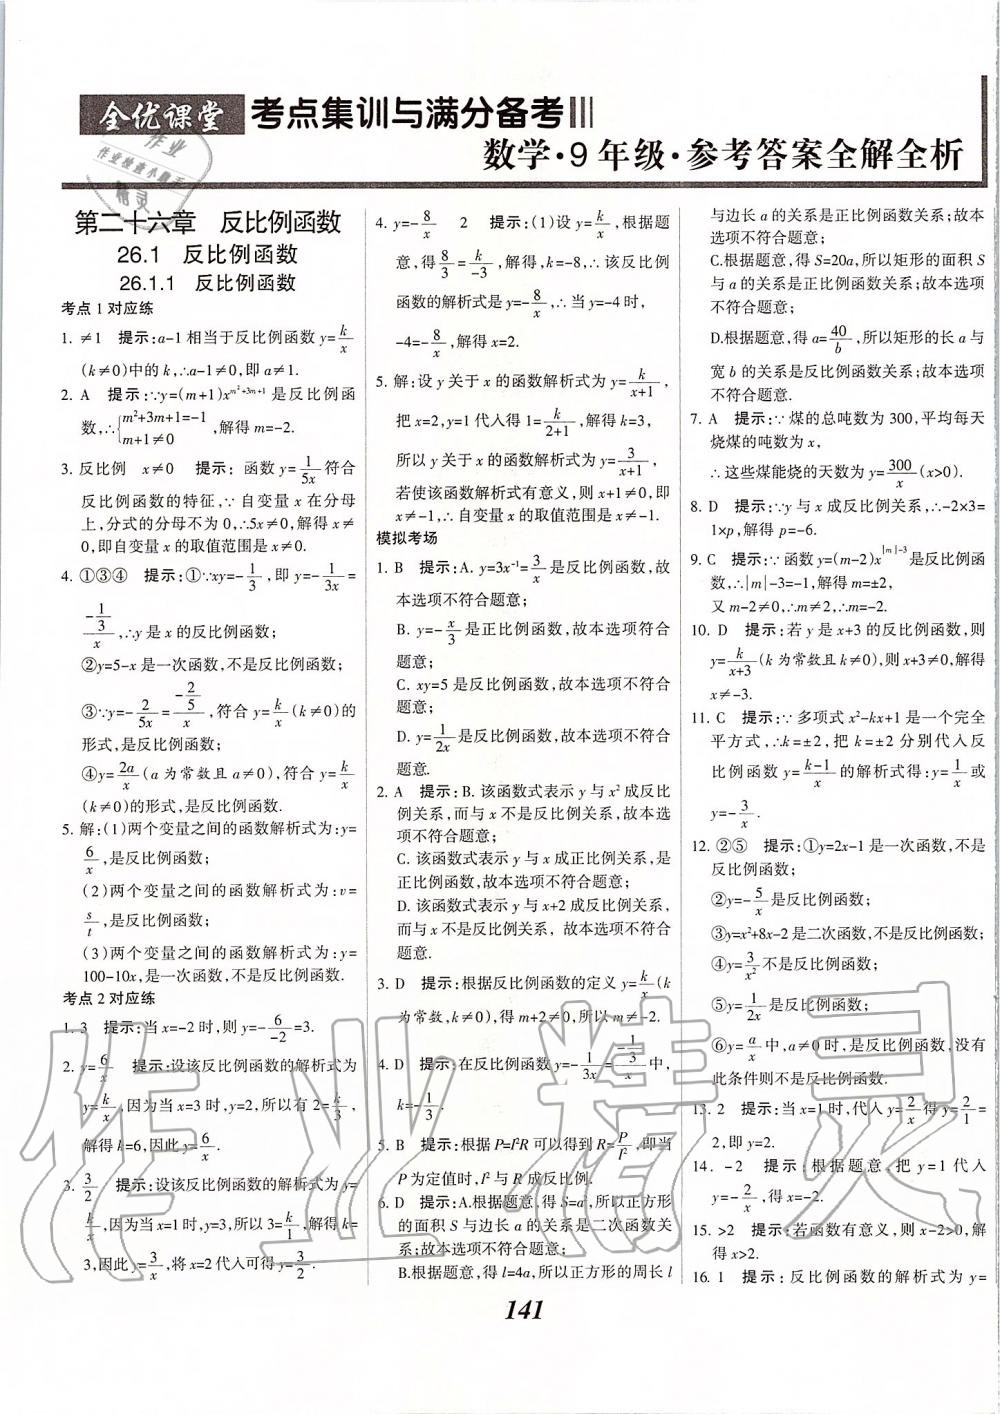 全优课堂
考点集训与满分备考
数学·9年级·参考答案全解全析
第二十六章 反比例函数
26.1 反比例函数
26.1.1 反比例函数
考点1对应练
1. ≠1 提示:a-1相当于反比例函数y=k/x
(k≠0)中的k,∴a-1≠0,即a≠1.
2. A 提示:∵y=(m+1)x^(m²+3m+1)是反比例函
数,∴{m²+3m+1=-1
m+1≠0 ,解得m=-2.
3. 反比例 x≠0 提示:函数y=1/5x符合
反比例函数的特征,∵自变量x在分母
上,分式的分母不为0,∴5x≠0,解得x≠
0,即自变量x的取值范围是x≠0.
4. ①③④ 提示:①∵xy=-1/3,即y=-1/3x=
(-1/3)/x,∴y是x的反比例函数;
②y=5-x是一次函数,不是反比例函数;
③∵y=-2/5x=(-2/5)/x,符合y=k/x(k≠0)的
形式,是反比例函数;
④y=2a/x(a为常数且a≠0),符合y=k/x
(k≠0)的形式,是反比例函数.
5. 解:(1)两个变量之间的函数解析式为:y=
6/x,是反比例函数;
(2)两个变量之间的函数解析式为:v=
s/t,是反比例函数;
(3)两个变量之间的函数解析式为:y=
100-10x,是一次函数,不是反比例函数.
考点2对应练
1. 3 提示:当x=-2时,则y=-6/-2=3.
2. y=6/x 提示:设该反比例函数的解析式为
y=k/x,因为当x=3时,y=2,所以有2=k/3,
解得k=6,因此y=6/x.
3. 3/2 提示:设该反比例函数的解析式为y=
k/x,因为当x=1时,y=3,所以3=k/1,解得k=
3,因此y=3/x,将x=2代入可得y=3/2.
4. y=-8/x 2 提示:(1)设y=k/x,根据题
意,得8/3=k/-3,解得,k=-8,∴该反比例
函数的解析式是y=-8/x,∴当y=-4时,
-4=-8/x,解得x=2.
5. 解:设y关于x的函数解析式为y=k/x+1,
把x=2,y=1代入得1=k/2+1,解得k=3,
所以y关于x的函数解析式为y=3/(x+1)
若使该函数解析式有意义,则x+1≠0,即
x≠-1,∴自变量x的取值范围是x≠-1.
模拟考场
1. B 提示:A. y=3x⁻¹=3/x是反比例函数,故
本选项不符合题意;
B. y=-x/3是正比例函数,故本选项符合
题意;
C. xy=5是反比例函数,故本选项不符合
题意;
D. y=1/2x是反比例函数,故本选项不符合
题意.
2. A 提示:B. 该函数式表示y与x²成反比
例关系,而与x不是反比例关系,故本选
项不符合题意;
C. 该函数式表示y与x成正比例关系,是
正比例函数,故本选项不符合题意;
D. 该函数式表示y与x+2成反比例关系,
而与x不是反比例关系,故本选项不符合
题意.
3. D 提示:根据反比例函数的定义y=k/x(k
为常数,k≠0),得m+2≠0,所以m≠-2.
4. D 提示:在反比例函数y=-1/3x=(-1/3)/x中,
k=-1/3.
5. B 提示:根据P=I²R可以得到R=P/I²,即当
P为定值时,I²与R成反比例.
6. D 提示:A.根据题意,得S=a²,所以正方形
的面积S与边长a的关系是二次函数关
系;故本选项不符合题意;
B.根据题意,得l=4a,所以正方形的周长l
与边长a的关系是正比例函数关系;故本
选项不符合题意;
C.根据题意,得S=20a,所以矩形的面积S
与a的关系是正比例函数关系;故本选项
不符合题意;
D.根据题意,得a=40/b,所以矩形的长a与
宽b的关系是反比例函数关系;故本选项
符合题意.
7. A 提示:∵煤的总吨数为300,平均每天
烧煤的吨数为x,
∴这些煤能烧的天数为y=300/x(x>0).
8. D 提示:∵y与x成反比例函数,∴-2×3=
1×p,解得p=-6.
9. C 提示:∵函数y=(m-2)x^(|m|-3)是反比例函
数,∴|m|-3=-1,解得m=±2,
又m-2≠0,∴m≠2,∴m=-2.
10. D 提示:若y是x+3的反比例函数,则
y=k/x+3(k为常数且k≠0),则x+3≠0,解得
x≠-3.
11. C 提示:∵多项式x²-kx+1是一个完全
平方式,∴k=±2,把k=±2分别代入反
比例函数y=k-1/x的解析式得:y=1/x或
y=-3/x.
12. ②⑤ 提示:①y=2x-1是一次函数,不是
反比例函数;
②y=-5/x是反比例函数;
③y=x²+8x-2是二次函数,不是反比例函数;
④y=3/x²不是反比例函数;
⑤y=1/2x是反比例函数;
⑥y=a/x中,a≠0时,是反比例函数,没有
此条件则不是反比例函数.
13. 2 提示:当x=1时,代入y=2/x得y=2/1=
2,即y=2.
14. -2 提示:根据题意,把y=1代入
y=-2/x,得x=-2.
15. >2 提示:若函数有意义,则x-2>0,解
得x>2.
16. 1 提示:反比例函数的解析式为y=
141